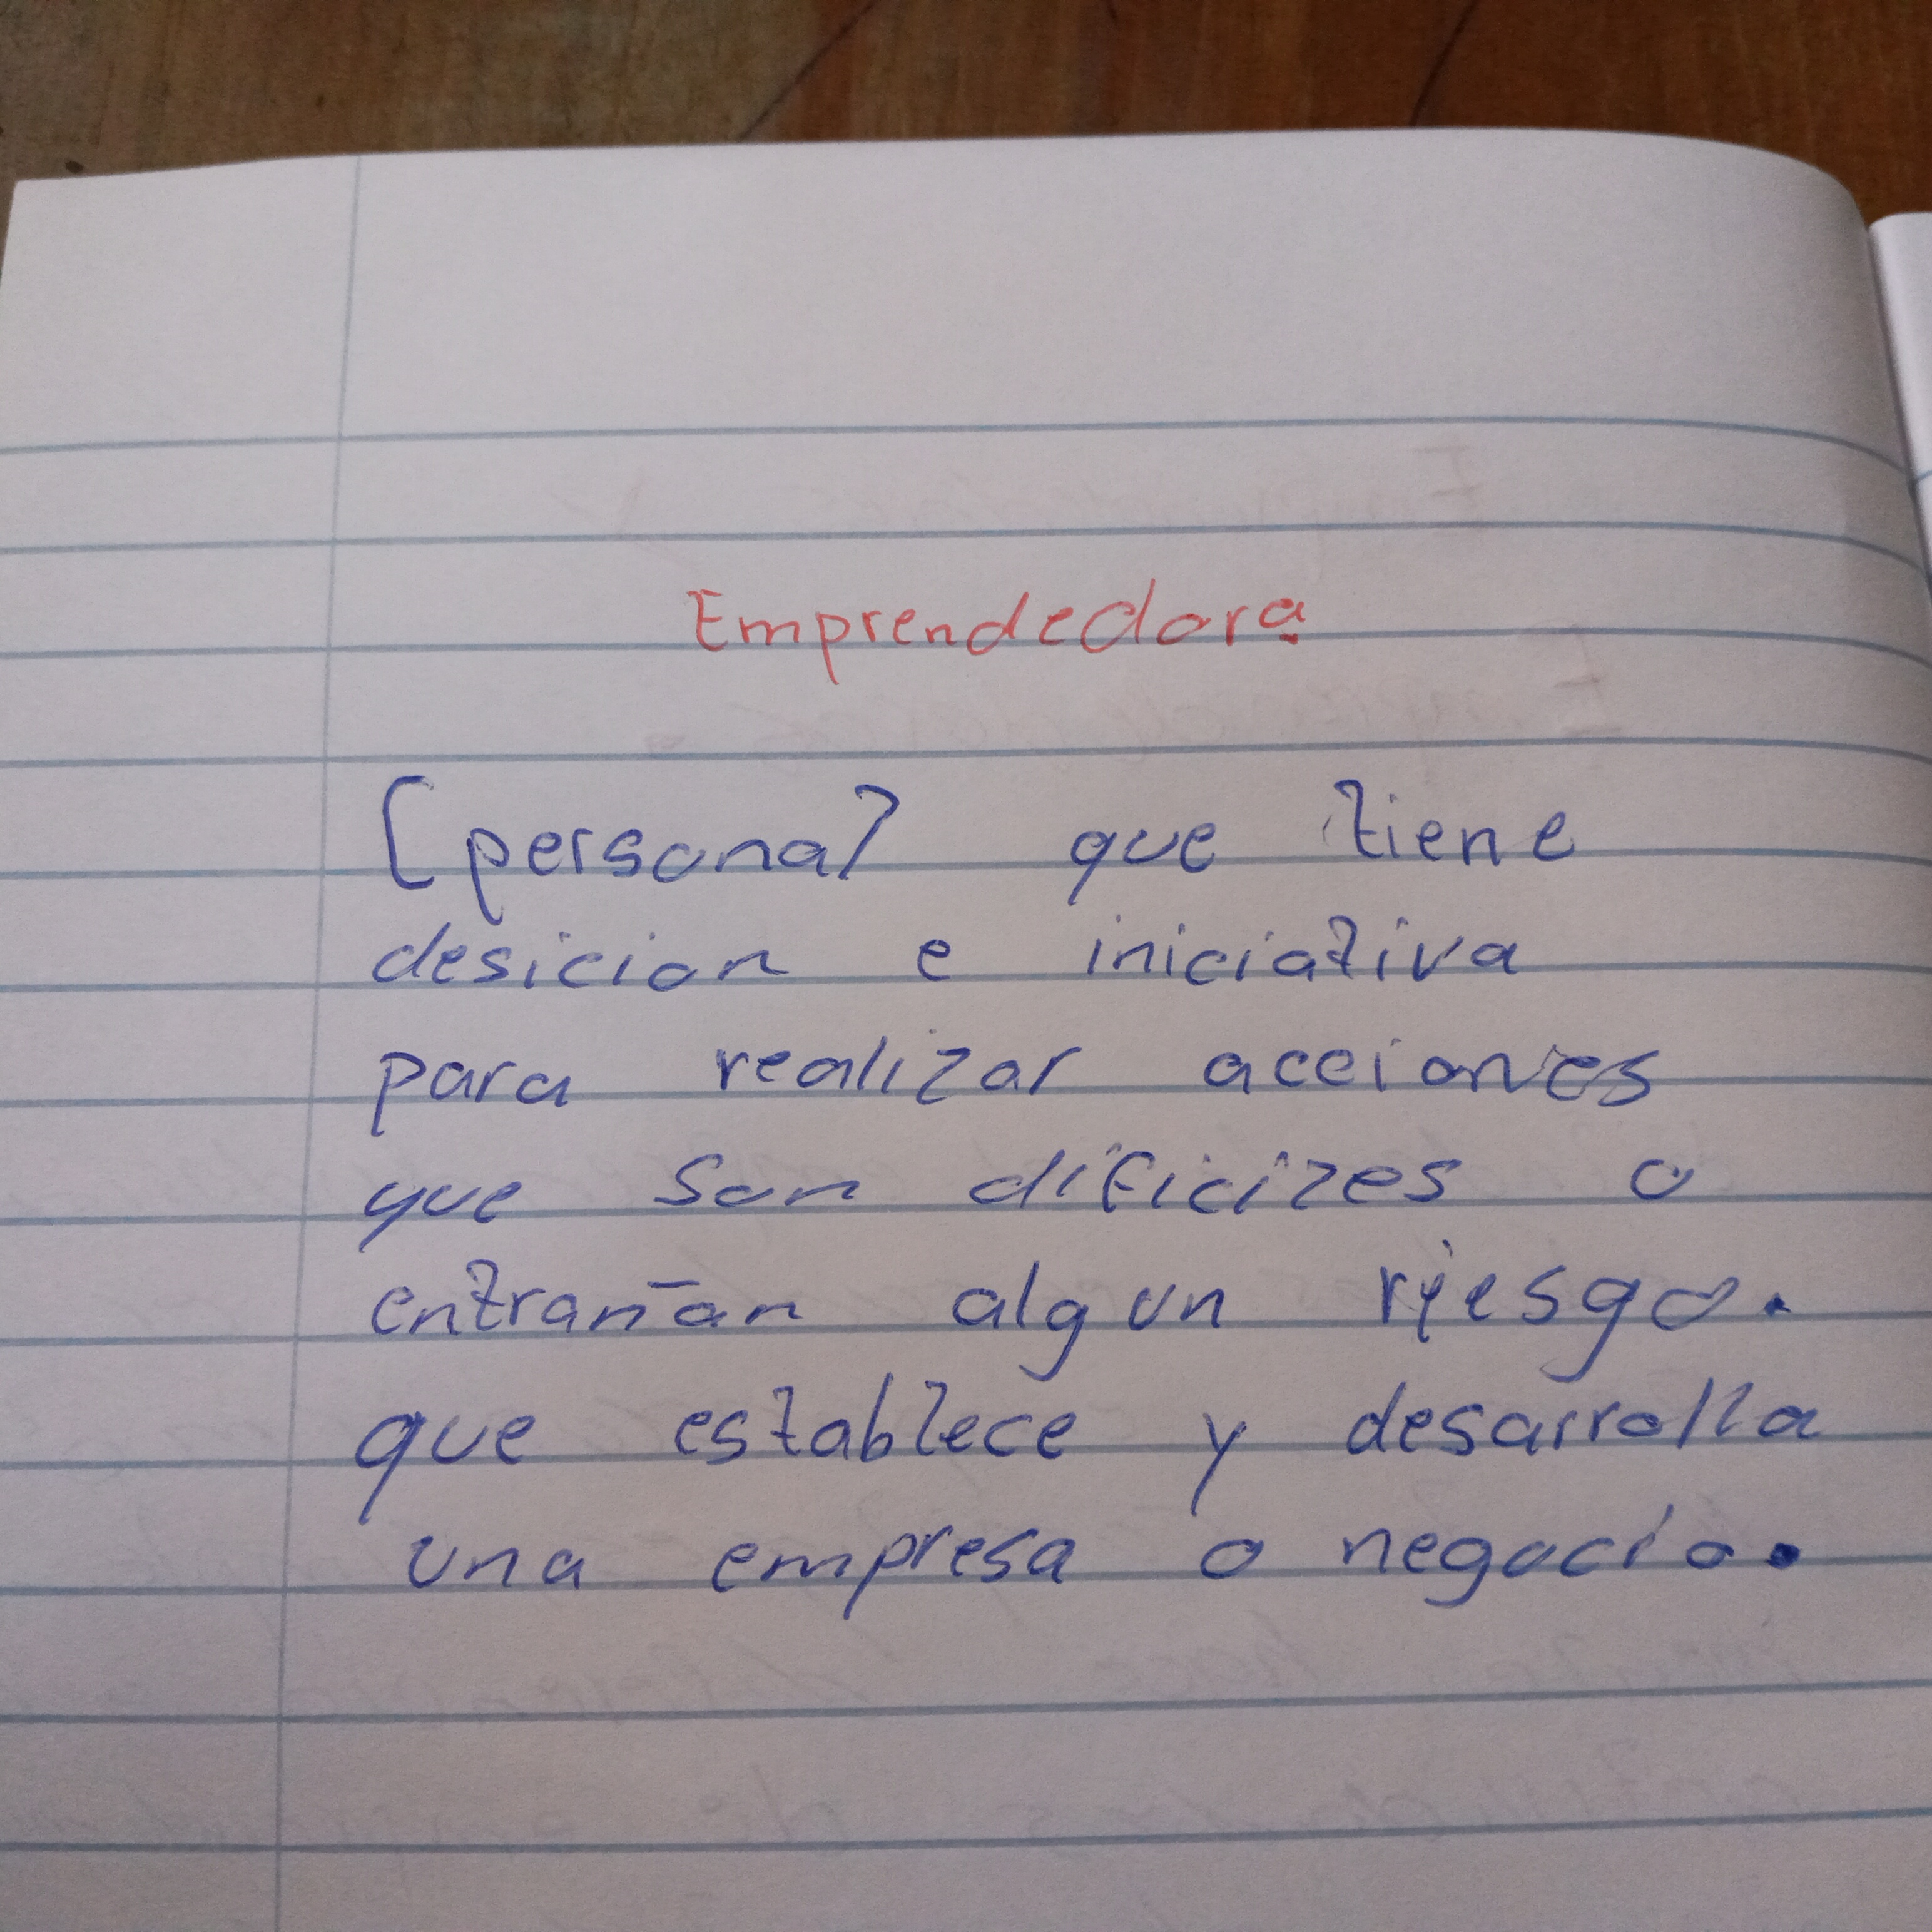 Emprendedora
[persona] que tiene
desicion e iniciativa
para realizar acciones
que son dificiles o
entrañan algun riesgo.
que establece y desarrolla
una empresa o negocio.